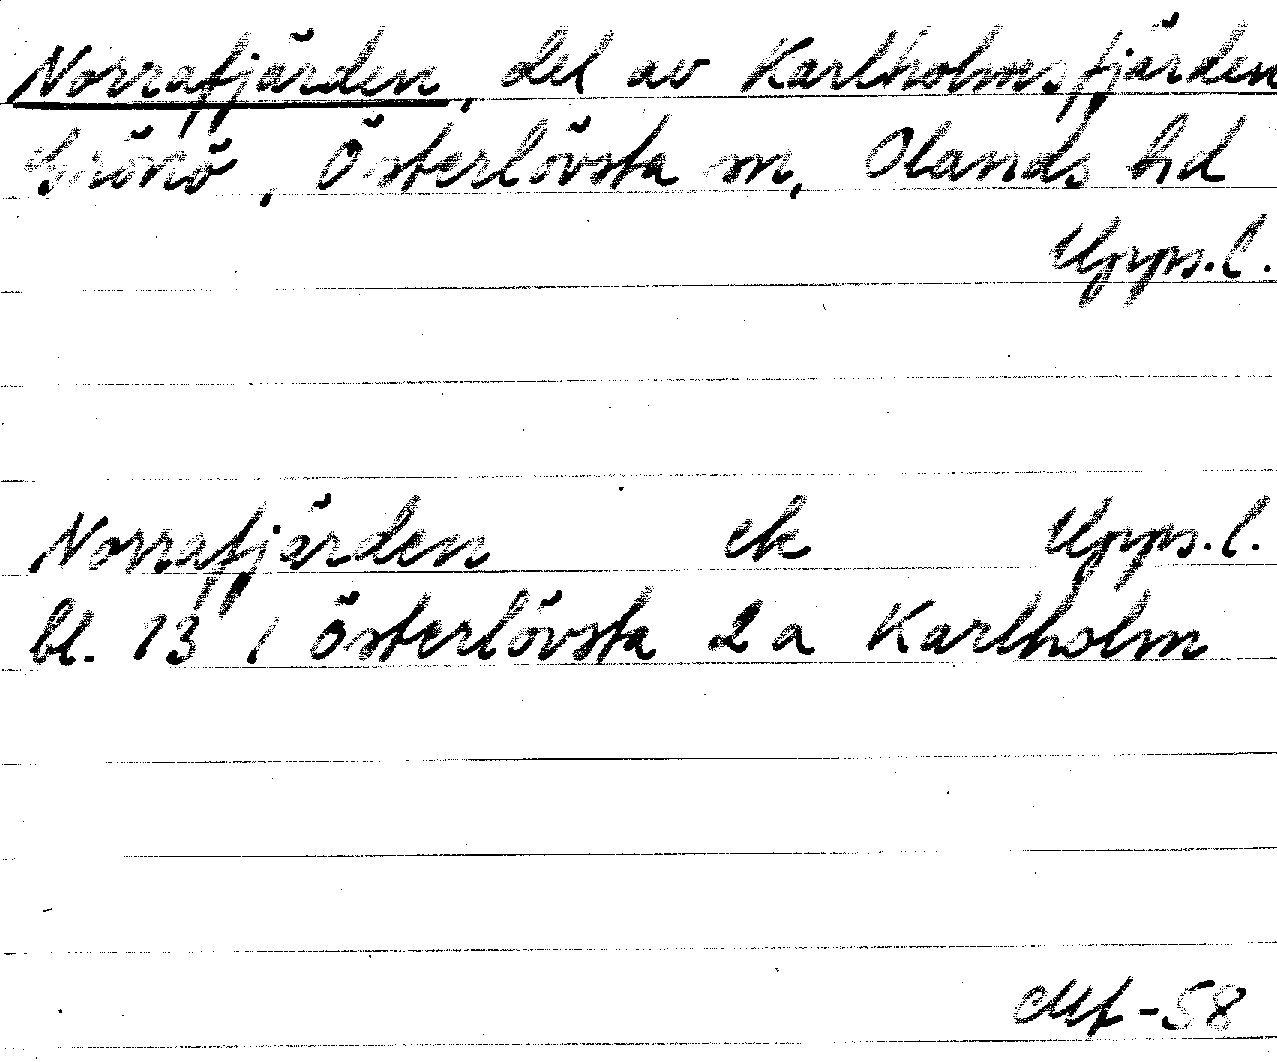 Norrafjärden, del av Karlholmsfjärden
Grönö, Österlövsta sn, Olands hd
Upps.l.
Norrafjärden ek Upps.l.
bl. 13 i Österlövsta 2a Karlholm
-58